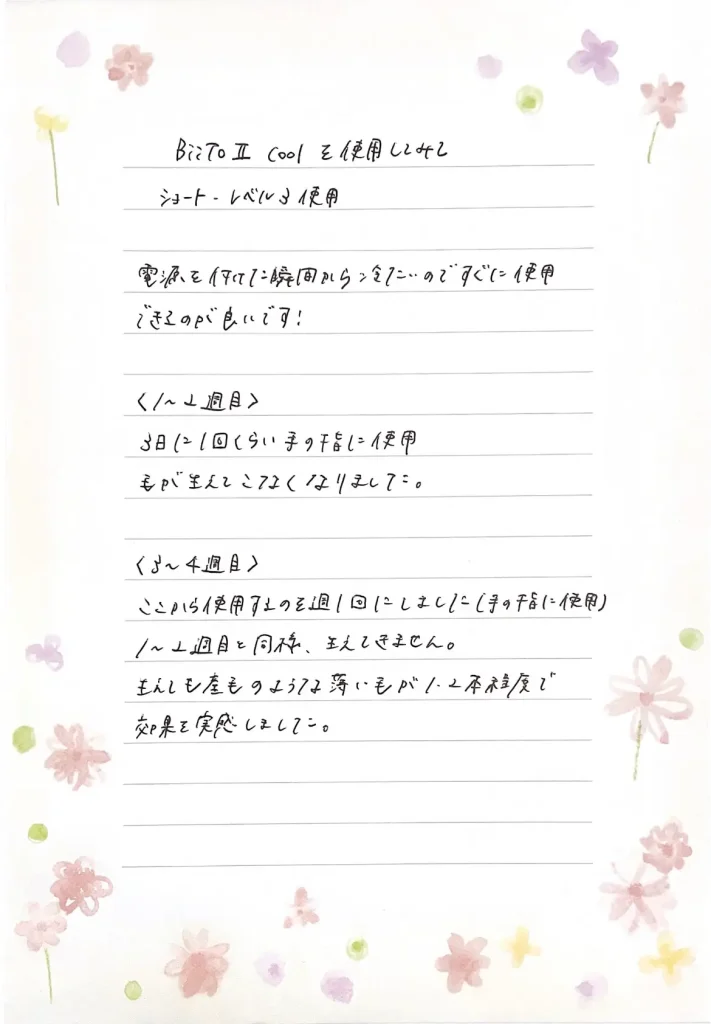 BiiTo II cool を使用してみて
ショート・レベル3使用
電源を付けた瞬間から冷たいのですぐに使用
できるのが良いです!
〈1〜2週目〉
3日に1回くらい手の指に使用
毛が生えてこなくなりました。
〈3〜4週目〉
ここから使用するのを週1回にしました(手の指に使用)
1〜2週目と同様、生えてきません。
生えても産毛のような薄い毛が1、2本程度で
効果を実感しました。